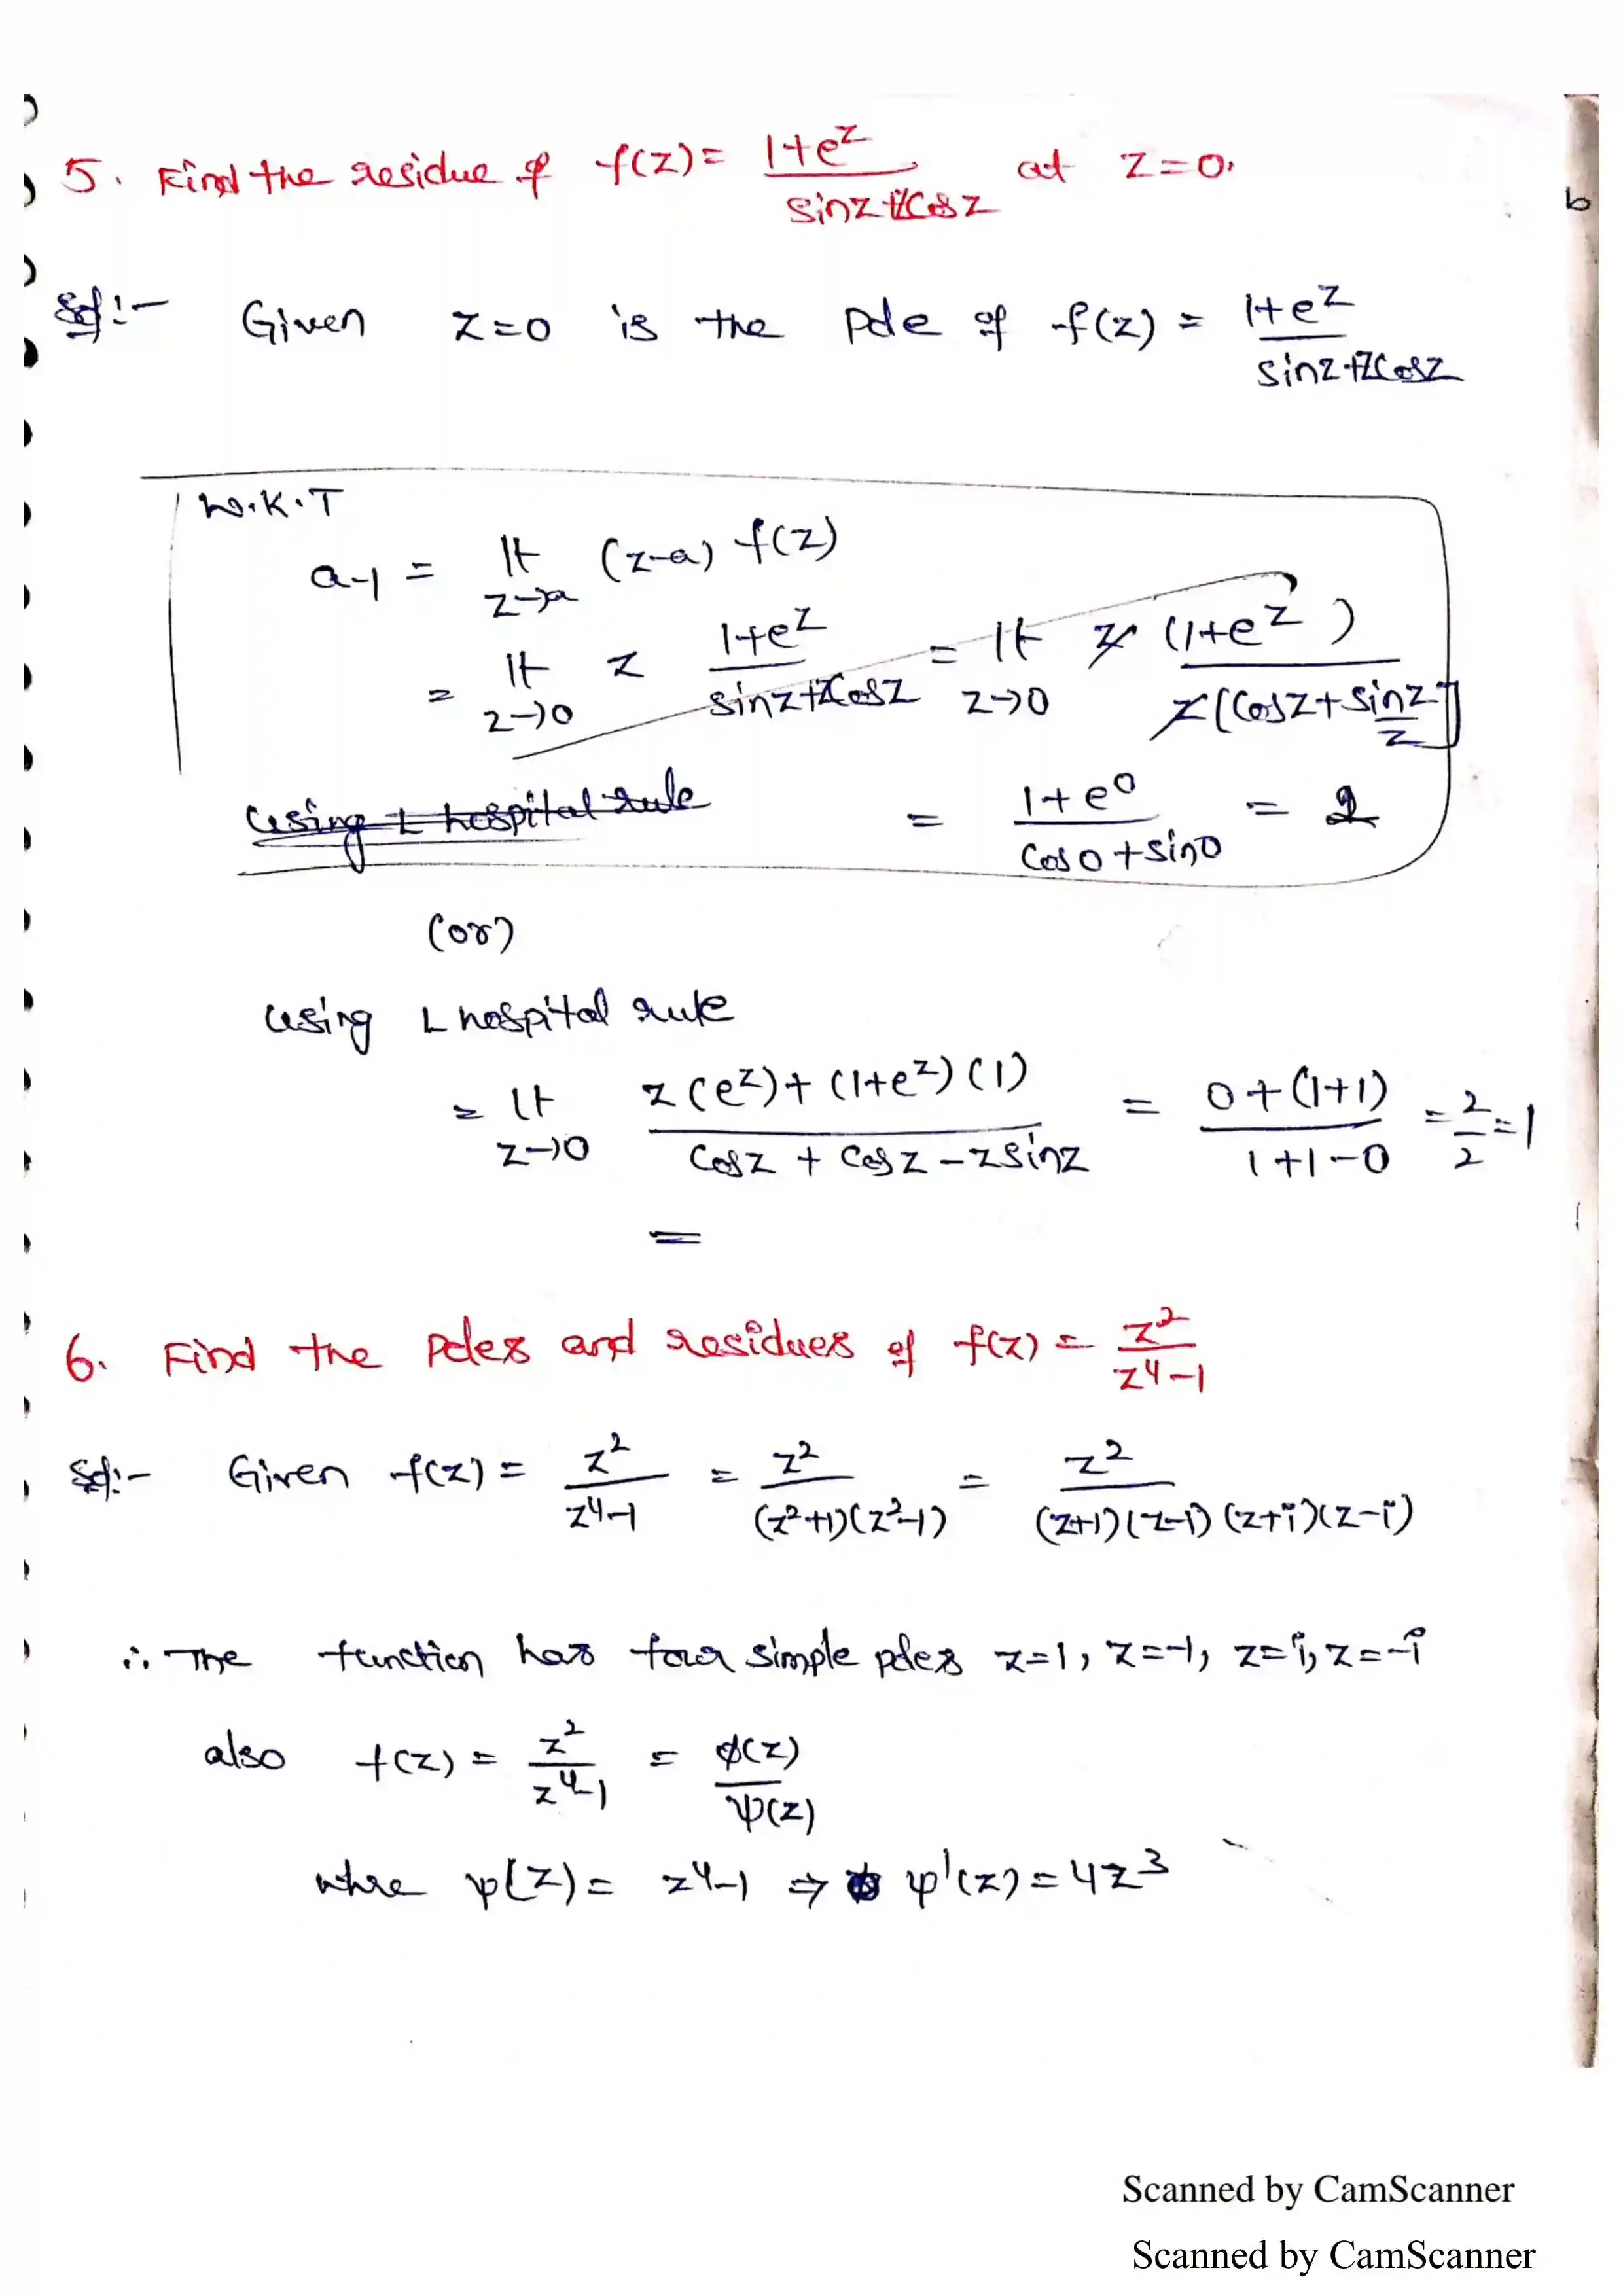 5. Find the residue of f(z) = 1+e^z / sinz+zcosz at z=0.
b
Sol:- Given z=0 is the pole of f(z) = 1+e^z / sinz+zcosz
W.K.T
a-1 = lt z→a (z-a) f(z)
= lt z→0 z 1+e^z / sinz+zcosz = lt z→0 z (1+e^z) / z[cosz+ sinz/z]
using L hospital rule = 1+e^0 / cos0+sin0 = 2
(or)
using L hospital rule
= lt z→0 z(e^z)+(1+e^z)(1) / cosz + cosz - zsinz = 0+(1+1) / 1+1-0 = 2/2 = 1
=
6. Find the poles and residues of f(z) = z^2 / z^4-1
Sol:- Given f(z) = z^2 / z^4-1 = z^2 / (z^2+1)(z^2-1) = z^2 / (z+1)(z-1)(z+i)(z-i)
∴ The function has four simple poles z=1, z=-1, z=i, z=-i
also f(z) = z^2 / z^4-1 = φ(z) / ψ(z)
where ψ(z) = z^4-1 ⇒ ψ'(z) = 4z^3
Scanned by CamScanner
Scanned by CamScanner